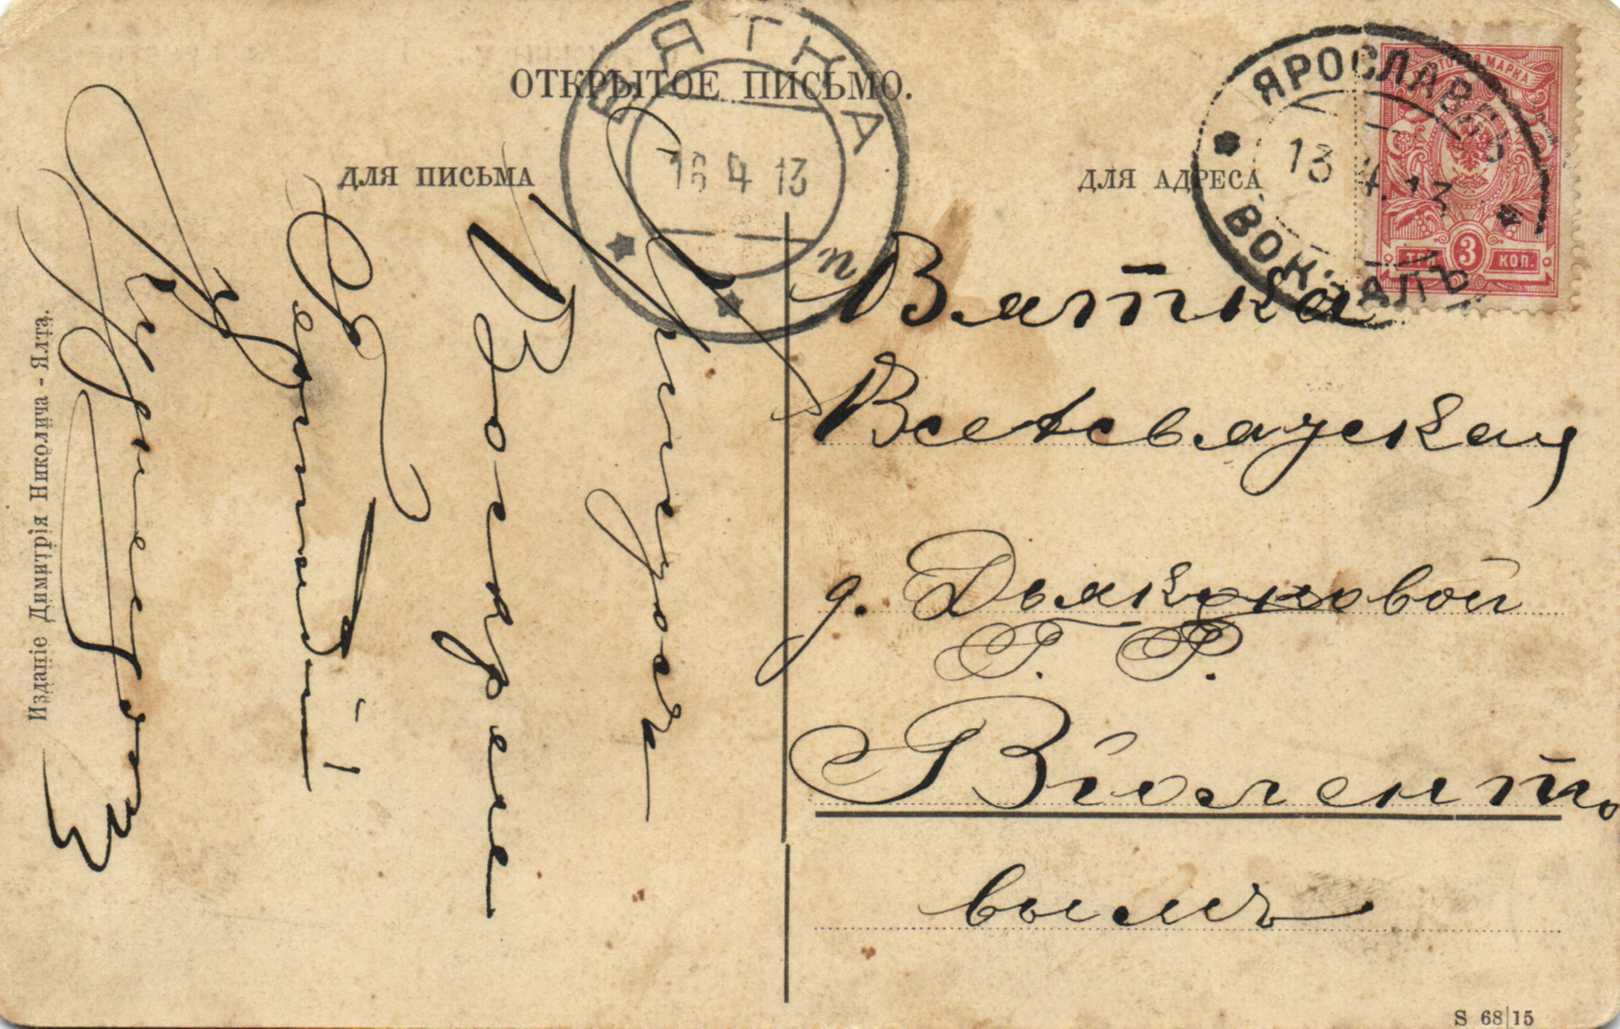 ОТКРЫТОЕ ПИСЬМО.
ДЛЯ ПИСЬМА
ДЛЯ АДРЕСА
ВЯТКА
16 4 13
ЯРОСЛАВЛЬ
13 4 13
ВОКЗАЛЪ
МАРКА
3
ТРИ КОП.
Христосъ
Воскресе
Вятка
Всехсвятская
д.
Г. Р.
Віоленто
вымъ
Изданіе Димитрія Николича - Ялта.
S 68|15